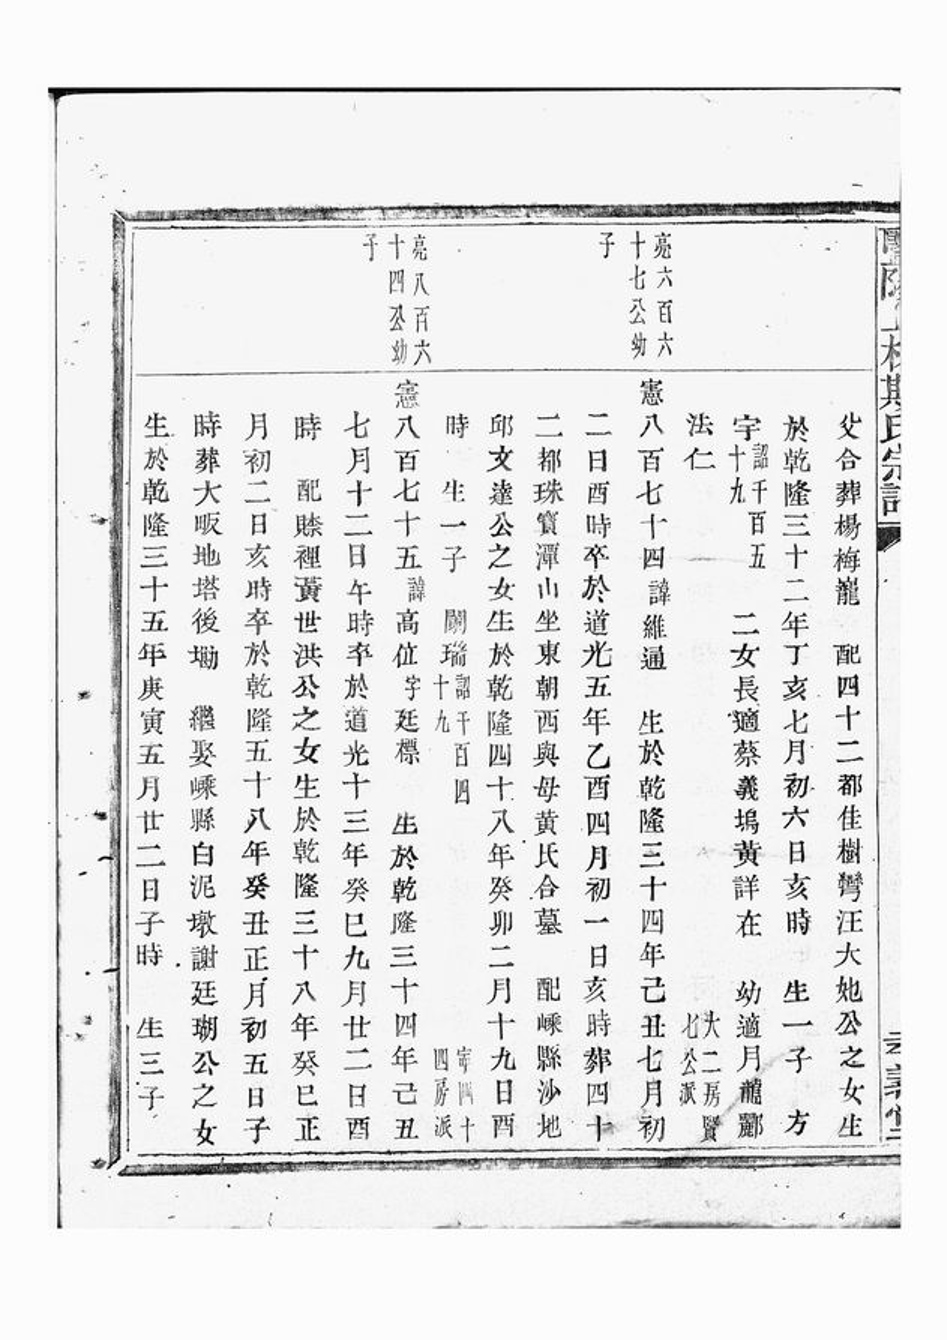 父合葬楊梅巃 配四十二都佳樹灣汪大她公之女生
於乾隆三十二年丁亥七月初六日亥時 生一子 方
宇詔千百五十九 二女長適蔡義塢黃詳在 幼適月龍酈
法仁 大二房賢七公派
亮六百六十七公幼子
憲八百七十四諱維通 生於乾隆三十四年己丑七月初
二日酉時卒於道光五年乙酉四月初一日亥時葬四十
二都珠寶潭山坐東朝西與母黄氏合墓 配嵊縣沙地
邱文達公之女生於乾隆四十八年癸卯二月十九日酉
時 生一子 關瑞詔千百四十九 寧四十四房派
亮八百六十四公幼子
憲八百七十五諱高位字廷標 生於乾隆三十四年己丑
七月十二日午時卒於道光十三年癸巳九月廿二日酉
時 配賒裡黃世洪公之女生於乾隆三十八年癸巳正
月初二日亥時卒於乾隆五十八年癸丑正月初五日子
時葬大畈地塔後塪 繼娶嵊縣白泥墩謝廷瑚公之女
生於乾隆三十五年庚寅五月廿二日子時 生三子